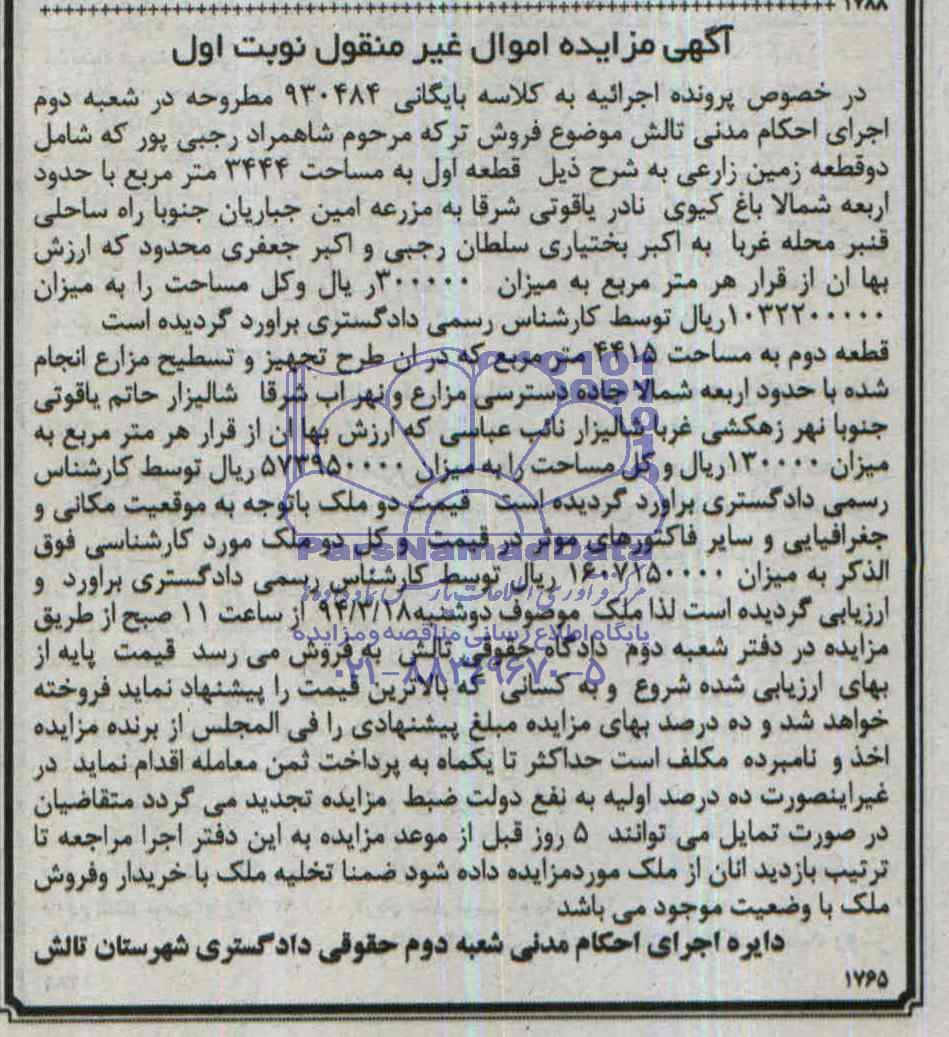 ۱۷۸۸
آگهی مزایده اموال غیر منقول نوبت اول
در خصوص پرونده اجرائیه به کلاسه بایگانی ۹۳۰۴۸۴ مطروحه در شعبه دوم
اجرای احکام مدنی تالش موضوع فروش ترکه مرحوم شاهمراد رجبی پور که شامل
دوقطعه زمین زارعی به شرح ذیل قطعه اول به مساحت ۳۴۴۴ متر مربع با حدود
اربعه شمالا باغ کیوی نادر یاقوتی شرقا به مزرعه امین جباریان جنوبا راه ساحلی
قنبر محله غربا به اکبر بختیاری سلطان رجبی و اکبر جعفری محدود که ارزش
بها ان از قرار هر متر مربع به میزان ۳۰۰۰۰۰ر یال وکل مساحت را به میزان
۱۰۳۲۲۰۰۰۰۰ریال توسط کارشناس رسمی دادگستری براورد گردیده است
قطعه دوم به مساحت ۴۴۱۵ متر مربع که در ان طرح تجهیز و تسطیح مزارع انجام
شده با حدود اربعه شمالا جاده دسترسی مزارع و نهر اب شرقا شالیزار حاتم یاقوتی
جنوبا نهر زهکشی غربا شالیزار نائب عباسی که ارزش بها ان از قرار هر متر مربع به
میزان ۱۳۰۰۰۰ریال و کل مساحت را به میزان ۵۷۳۹۵۰۰۰۰ ریال توسط کارشناس
رسمی دادگستری براورد گردیده است قیمت دو ملک باتوجه به موقعیت مکانی و
جغرافیایی و سایر فاکتورهای موثر در قیمت و کل دو ملک مورد کارشناسی فوق
الذکر به میزان ۱۶۰۷۱۵۰۰۰۰ ریال توسط کارشناس رسمی دادگستری براورد و
ارزیابی گردیده است لذا ملک موصوف دوشنبه۹۴/۳/۱۸ از ساعت ۱۱ صبح از طریق
مزایده در دفتر شعبه دوم دادگاه حقوقی تالش به فروش می رسد قیمت پایه از
بهای ارزیابی شده شروع و به کسانی که بالاترین قیمت را پیشنهاد نماید فروخته
خواهد شد و ده درصد بهای مزایده مبلغ پیشنهادی را فی المجلس از برنده مزایده
اخذ و نامبرده مکلف است حداکثر تا یکماه به پرداخت ثمن معامله اقدام نماید در
غیراینصورت ده درصد اولیه به نفع دولت ضبط مزایده تجدید می گردد متقاضیان
در صورت تمایل می توانند ۵ روز قبل از موعد مزایده به این دفتر اجرا مراجعه تا
ترتیب بازدید انان از ملک موردمزایده داده شود ضمنا تخلیه ملک با خریدار وفروش
ملک با وضعیت موجود می باشد
دایره اجرای احکام مدنی شعبه دوم حقوقی دادگستری شهرستان تالش
۱۷۶۵
ParsNamadData
پایگاه اطلاع رسانی مناقصه و مزایده
۰۲۱-۸۸۳۴۹۶۷۰-۵